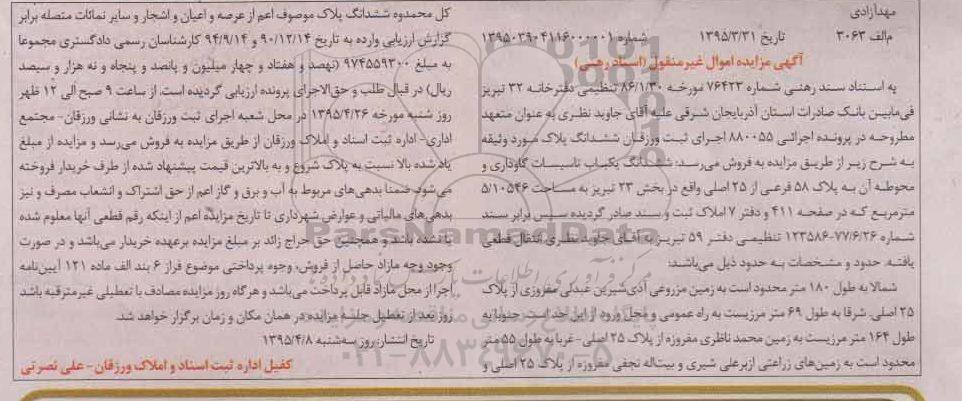 مهدآزادی
م‌الف ۳۰۶۳ تاریخ ۱۳۹۵/۳/۳۱ شماره ۱۳۹۵۰۳۹۰۴۱۱۶۰۰۰۰۰۱
آگهی مزایده اموال غیرمنقول (اسناد رهنی)
به استناد سند رهنی شماره ۷۶۴۲۳ مورخه ۸۶/۱/۳۰ تنظیمی دفترخانه ۳۲ تبریز
فی‌مابین بانک صادرات استان آذربایجان شرقی علیه آقای جاوید نظری به عنوان متعهد
مطروحه در پرونده اجرائی ۸۸۰۰۵۵ اجرای ثبت ورزقان ششدانگ پلاک مورد وثیقه
به شرح زیر از طریق مزایده به فروش می‌رسد: ششدانگ یکباب تاسیسات گاوداری و
محوطه آن به پلاک ۵۸ فرعی از ۲۵ اصلی واقع در بخش ۲۳ تبریز به مساحت ۵/۱۰۵۴۶
مترمربع که در صفحه ۴۱۱ و دفتر ۷ املاک ثبت و سند صادر گردیده سپس برابر سند
شماره ۷۷/۶/۲۶-۱۲۳۵۸۶ تنظیمی دفتر ۵۹ تبریز به آقای جاوید نظری انتقال قطعی
یافته. حدود و مشخصات به حدود ذیل می‌باشد:
شمالا به طول ۱۸۰ متر محدود است به زمین مزروعی آذی‌شیرین عبدلی مفروزی از پلاک
۲۵ اصلی. شرقا به طول ۶۹ متر مرزیست به راه عمومی و محل ورود از این حد است جنوبا به
طول ۱۶۴ متر مرزیست به زمین محمد ناظری مفروزه از پلاک ۲۵ اصلی - غربا به طول ۵۵ متر
محدود است به زمین‌های زراعتی ازبرعلی شیری و بیت‌اله نجفی مفروزه از پلاک ۲۵ اصلی و
کل محدوده ششدانگ پلاک موصوف اعم از عرصه و اعیان و اشجار و سایر نمائات متصله برابر
گزارش ارزیابی وارده به تاریخ ۹۰/۱۲/۱۴ و ۹۴/۹/۱۴ کارشناسان رسمی دادگستری مجموعا
به مبلغ ۹۷۴۵۵۹۳۰۰ (نهصد و هفتاد و چهار میلیون و پانصد و پنجاه و نه هزار و سیصد
ریال) در قبال طلب و حق‌الاجرای پرونده ارزیابی گردیده است. از ساعت ۹ صبح الی ۱۲ ظهر
روز شنبه مورخه ۱۳۹۵/۴/۲۶ در محل شعبه اجرای ثبت ورزقان به نشانی ورزقان- مجتمع
اداری- اداره ثبت اسناد و املاک ورزقان از طریق مزایده به فروش می‌رسد و مزایده از مبلغ
یاد شده بالا نسبت به پلاک شروع و به بالاترین قیمت پیشنهاد شده از طرف خریدار فروخته
می‌شود ضمنا بدهی‌های مربوط به آب و برق و گاز اعم از حق اشتراک و انشعاب مصرف و نیز
بدهی‌های مالیاتی و عوارض شهرداری تا تاریخ مزایده اعم از اینکه رقم قطعی آنها معلوم شده
یا نشده باشد و همچنین حق حراج زائد بر مبلغ مزایده برعهده خریدار می‌باشد و در صورت
وجود وجه مازاد حاصل از فروش، وجوه پرداختی موضوع فراز ۶ بند الف ماده ۱۲۱ آیین‌نامه
اجرا از محل مازاد قابل پرداخت می‌باشد و هرگاه روز مزایده مصادف با تعطیلی غیرمترقبه باشد
روز بعد از تعطیل جلسه مزایده در همان مکان و زمان برگزار خواهد شد.
تاریخ انتشار: روز سه‌شنبه ۱۳۹۵/۴/۸
کفیل اداره ثبت اسناد و املاک ورزقان - علی نصرتی
ParsNamadData
۰۲۱-۸۸۳۴۹۶۷۰-۵